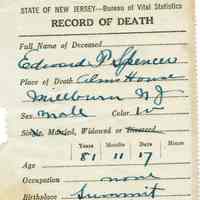 STATE OF NEW JERSEY—Bureau of Vital Statistics
RECORD OF DEATH
Full Name of Deceased
Edward P Spencer
Place of Death Alms House
Millburn N J
Sex Male Color W
Single, Married, Widowed or Divorced
Years Months Days Hours
Age 81 11 17
Occupation none
Birthplace Summit